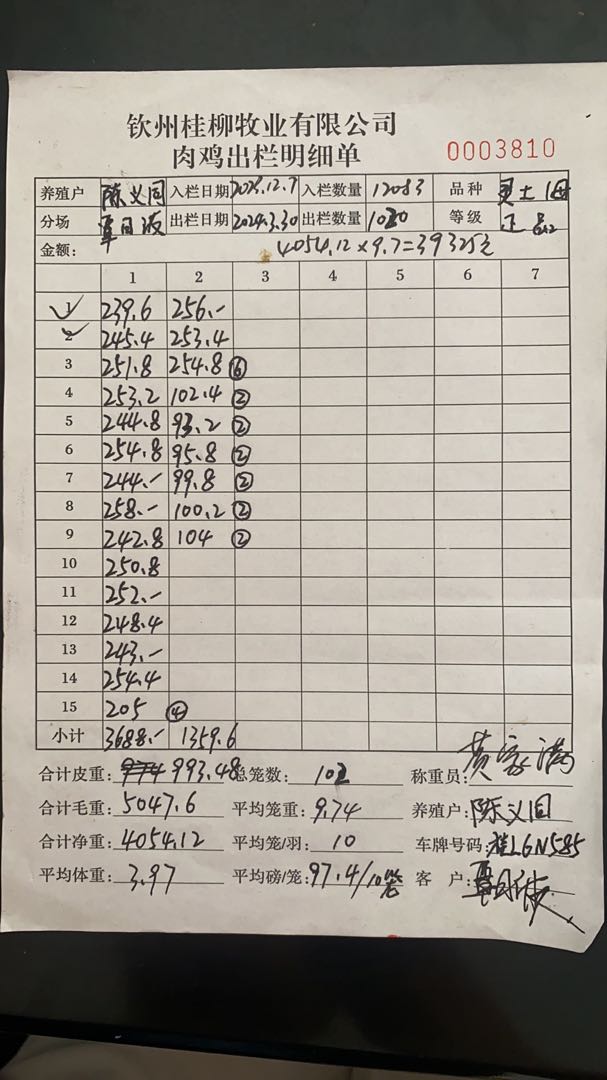 钦州桂柳牧业有限公司
肉鸡出栏明细单 0003810
养殖户 陈义国 入栏日期 2023.12.7 入栏数量 12083 品种 灵土1母
分场 覃日波 出栏日期 2024.3.30 出栏数量 1020 等级 正品
金额: 4054.12×9.7=39325元
1 2 3 4 5 6 7
1 239.6 256.-
2 245.4 253.4
3 251.8 254.8 ⑥
4 253.2 102.4 ②
5 244.8 93.2 ②
6 254.8 95.8 ②
7 244.- 99.8 ②
8 258.- 100.2 ②
9 242.8 104 ②
10 250.8
11 252.-
12 248.4
13 243.-
14 254.4
15 205 ④
小计 3688.- 1359.6
合计皮重: 974 993.48 总笼数: 102 称重员: 黄
合计毛重: 5047.6 平均笼重: 9.74 养殖户: 陈义国
合计净重: 4054.12 平均笼/羽: 10 车牌号码: 桂LGN585
平均体重: 3.97 平均磅/笼: 97.4/10笼 客 户: